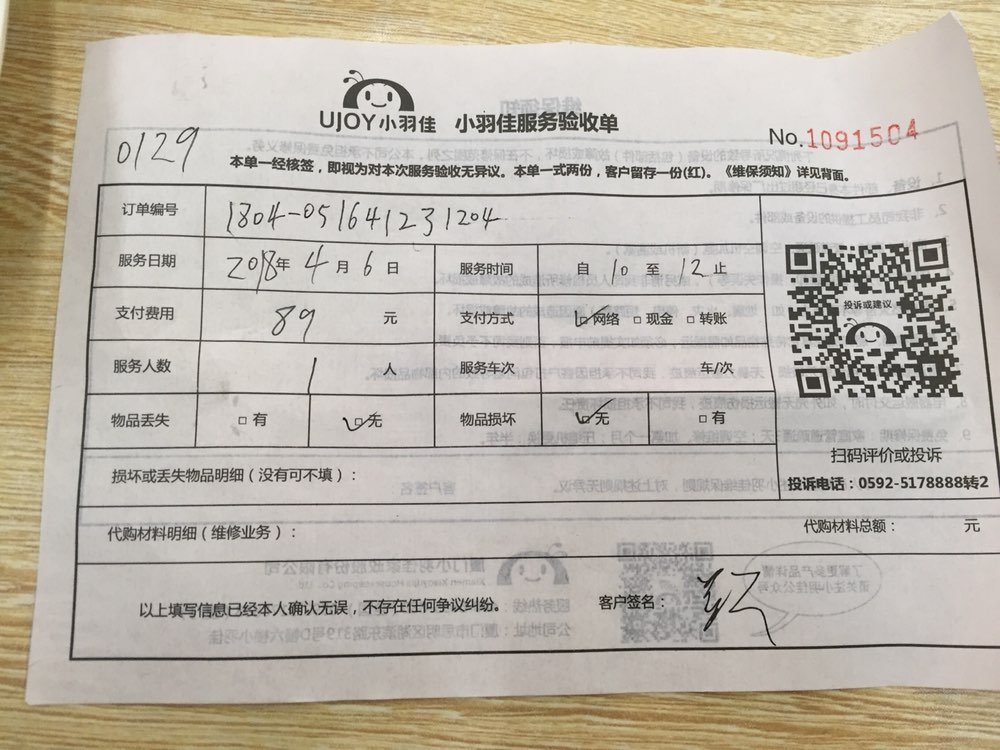 UJOY小羽佳 小羽佳服务验收单
No.1091504
0129
本单一经核签，即视为对本次服务验收无异议。本单一式两份，客户留存一份(红)。《维保须知》详见背面。
订单编号 1804-051641231204
服务日期 2018年4月6日 服务时间 自10至12止
支付费用 89 元 支付方式 ☑网络 □现金 □转账
服务人数 1 人 服务车次 车/次
物品丢失 □有 ☑无 物品损坏 ☑无 □有
投诉或建议
扫码评价或投诉
投诉电话：0592-5178888转2
损坏或丢失物品明细（没有可不填）：
代购材料明细（维修业务）： 代购材料总额： 元
以上填写信息已经本人确认无误，不存在任何争议纠纷。 客户签名：